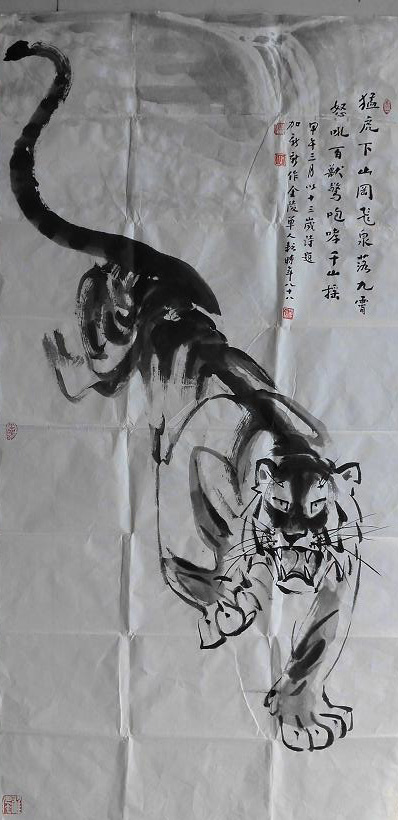 猛虎下山岡飛泉落九霄
怒吼百獸驚咆哮千山搖
甲午三月以十三歲詩題
加新新作金陵單人耘時年八十八